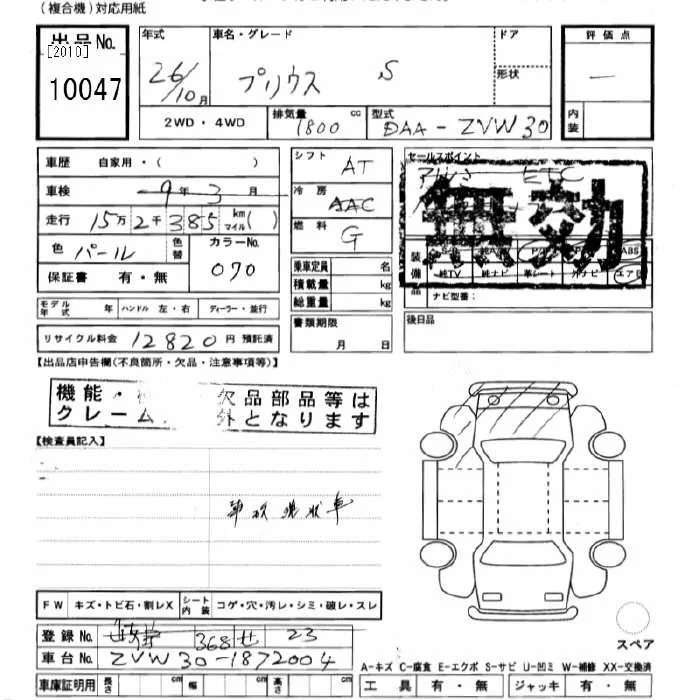 (複合機)対応用紙
出品No.
[2010]
10047
年式
26/10月
車名・グレード
プリウス S
ドア
形状
評価点
—
内装
2WD・4WD
排気量 1800 cc
型式 DAA-ZVW30
車歴 自家用・( )
車検 9年3月
走行 15万2千385 km マイル( )
色 パール
色替
カラーNo. 070
保証書 有・無
シフト AT
冷房 AAC
燃料 G
乗車定員 名
積載量 kg
総重量 kg
書類期限
月 日
セールスポイント
ETC
無効
装備品
ABS
純TV 純ナビ 革シート 外ナビ エアB
ナビ型番:
後日品
モデル年式 年 ハンドル 左・右 ディーラー・並行
リサイクル料金 12820円 預託済
【出品店申告欄(不良箇所・欠品・注意事項等)】
機能・ 欠品部品等は
クレーム 外となります
【検査員記入】
事故現状車
FW キズ・トビ石・割レX シート内装 コゲ・穴・汚レ・シミ・破レ・スレ
登録No. 368 せ 23
車台No. ZVW30-1872004
車庫証明用 長さ cm 幅 cm 高さ cm
スペア
A-キズ C-腐食 E-エクボ S-サビ U-凹ミ W-補修 XX-交換済
工具 有・無 ジャッキ 有・無